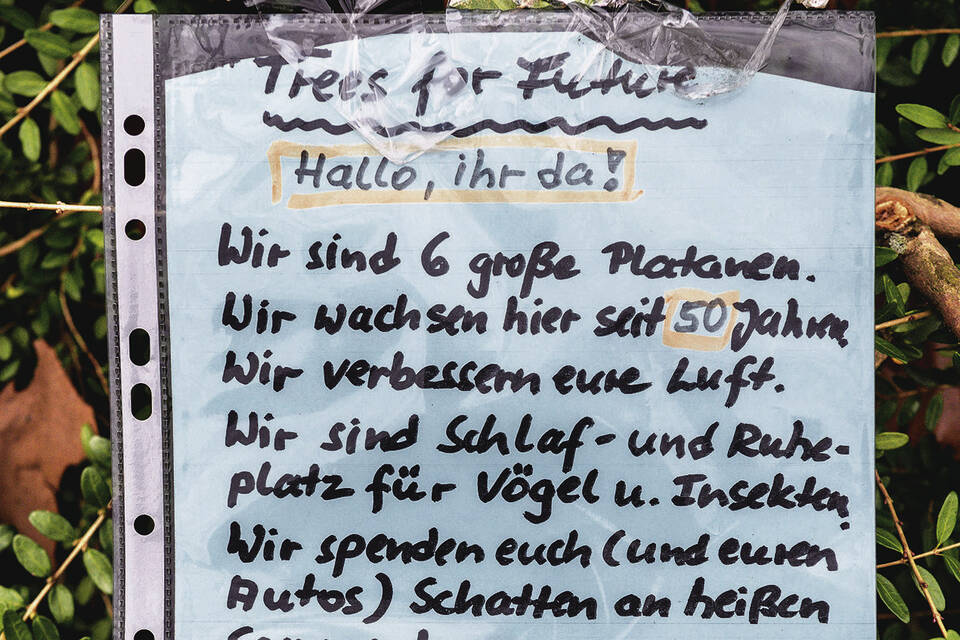 Trees for Future
Hallo, ihr da!
Wir sind 6 große Platanen.
Wir wachsen hier seit 50 Jahren.
Wir verbessern eure Luft.
Wir sind Schlaf- und Ruhe-
platz für Vögel u. Insekten.
Wir spenden euch (und euren
Autos) Schatten an heißen